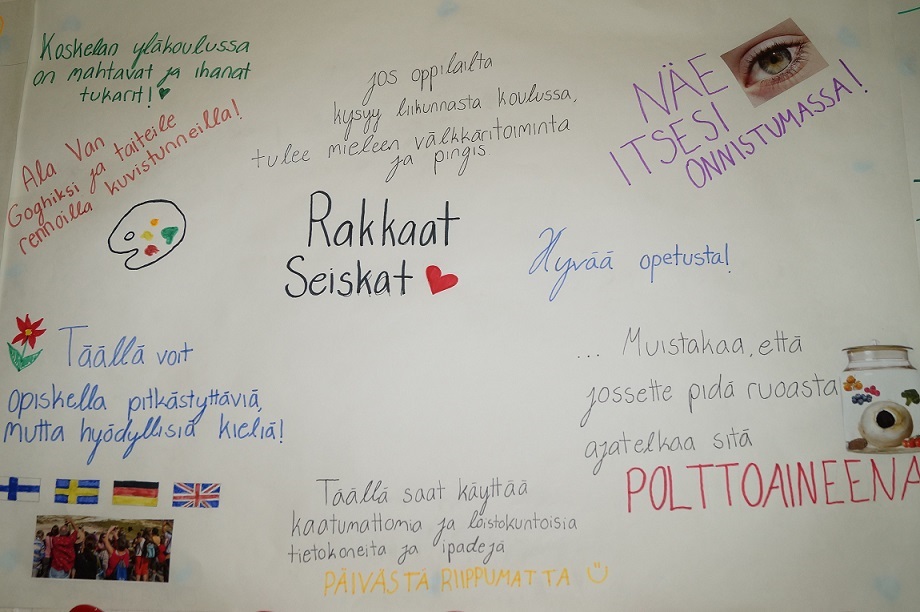 Koskelan yläkoulussa
on mahtavat ja ihanat
tukarit! ♥
Ala Van
Goghiksi ja taiteile
rennoilla kuvistunneilla!
jos oppilailta
kysyy liikunnasta koulussa,
tulee mieleen välkkäritoiminta
ja pingis.
NÄE
ITSESI
ONNISTUMASSA!
Rakkaat
Seiskat ♥
Hyvää opetusta!
Täällä voit
opiskella pitkästyttäviä,
mutta hyödyllisiä kieliä!
... Muistakaa, että
jossette pidä ruoasta
ajatelkaa sitä
POLTTOAINEENA
Täällä saat käyttää
kaatumattomia ja loistokuntoisia
tietokoneita ja ipadejä
PÄIVÄSTÄ RIIPPUMATTA ☺